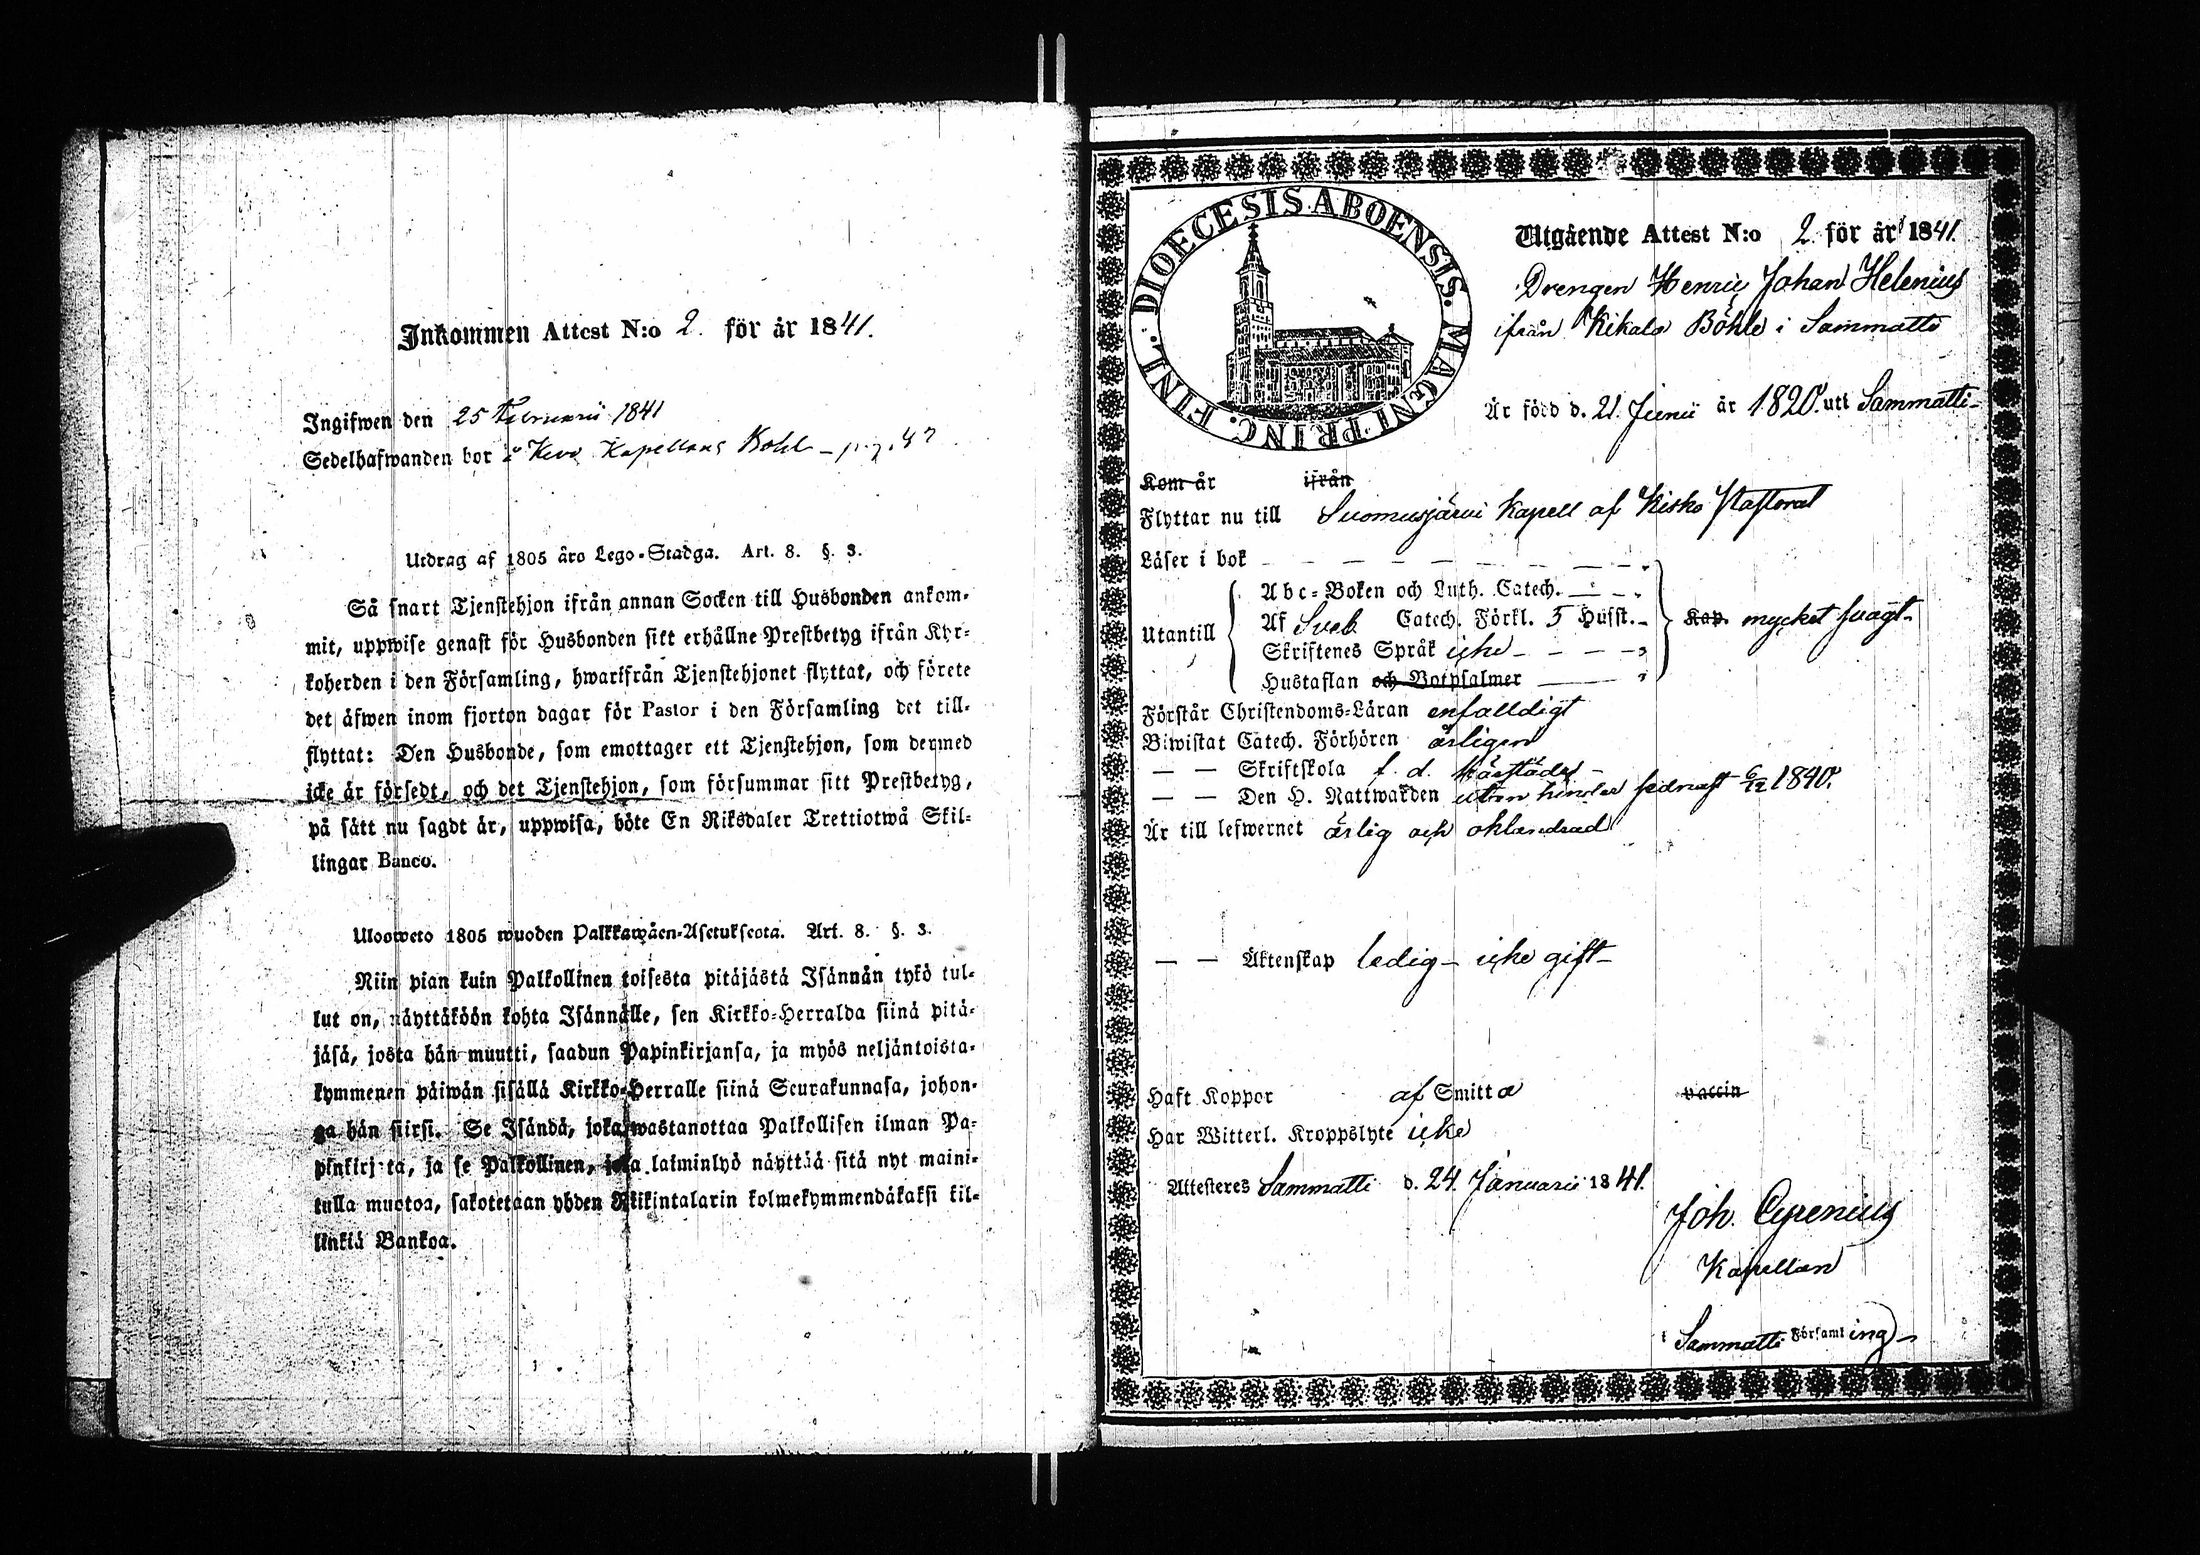 Inkommen Attest N:o 2. för år 1841.
Ingifwen den 25 Februarii 1841
Sedelhafwanden bor å Kapellans Bohl - pag. 47
Utdrag af 1805 års Lego-Stadga. Art. 8. §. 3.
Så snart Tjenstehjon ifrån annan Socken till Husbonden ankom-
mit, uppwise genast för Husbonden sitt erhållne Prestbetyg ifrån Kyr-
koherden i den Församling, hwarifrån Tjenstehjonet flyttat, och förete
det äfwen inom fjorton dagar för Pastor i den Församling det till-
flyttat: Den Husbonde, som emottager ett Tjenstehjon, som dermed
icke är försedt, och det Tjenstehjon, som försummar sitt Prestbetyg,
på sätt nu sagdt är, uppwisa, böte En Riksdaler Trettiotwå Skil-
lingar Banco.
Ulosweto 1805 wuoden Palkkawäen-Asetuksesta. Art. 8. §. 3.
Niin pian kuin Palkollinen toisesta pitäjästä Isännän tykö tul-
lut on, näyttäköön kohta Isännälle, sen Kirkko-Herralda siinä pitä-
jäsä, josta hän muutti, saadun Papinkirjansa, ja myös neljäntoista-
kymmenen päiwän sisällä Kirkko-Herralle siinä Seurakunnasa, johon-
ga hän siirsi. Se Isändä, joka wastanottaa Palkollisen ilman Pa-
pinkirjata, ja se Palkollinen, joka laiminlyö näyttää sitä nyt maini-
tulla muotoa, sakotetaan yhden Riikintalarin kolmekymmendäkaksi kil-
linkiä Bankoa.
DIOECESIS ABOENSIS. MAGNI PRINC. FINL.
Utgående Attest N:o 2. för år 1841.
Drengen Henric Johan Helenius
ifrån Kikala Böhle i Sammatti
Är född d. 21. Junii år 1820. uti Sammatti
Kom år ifrån
Flyttar nu till Suomusjärvi Kapell af Kisko Pastorat
Läser i bok
Utantill
Abc-Boken och Luth. Catech.
Af Sveb. Catech. Förkl. 5 Hufst.
Skriftenes Språk icke
Hustaflan och Botpsalmer
Kap. mycket svagt
Förstår Christendoms-Läran enfalldigt
Biwistat Catech. Förhören årligen
— — Skriftskola f. d. härstädes
— — Den H. Nattwarden utan hinder sednast 6/12 1840.
Är till lefwernet ärlig och oklandrad
— — Äktenskap ledig - icke gift
Haft Koppor af Smitta vaccin
Har Witterl. Kroppslyte icke
Attesteres Sammatti d. 24. Januarii 1841.
Joh. Cyrenius
Kapellan
i Sammatti Församling